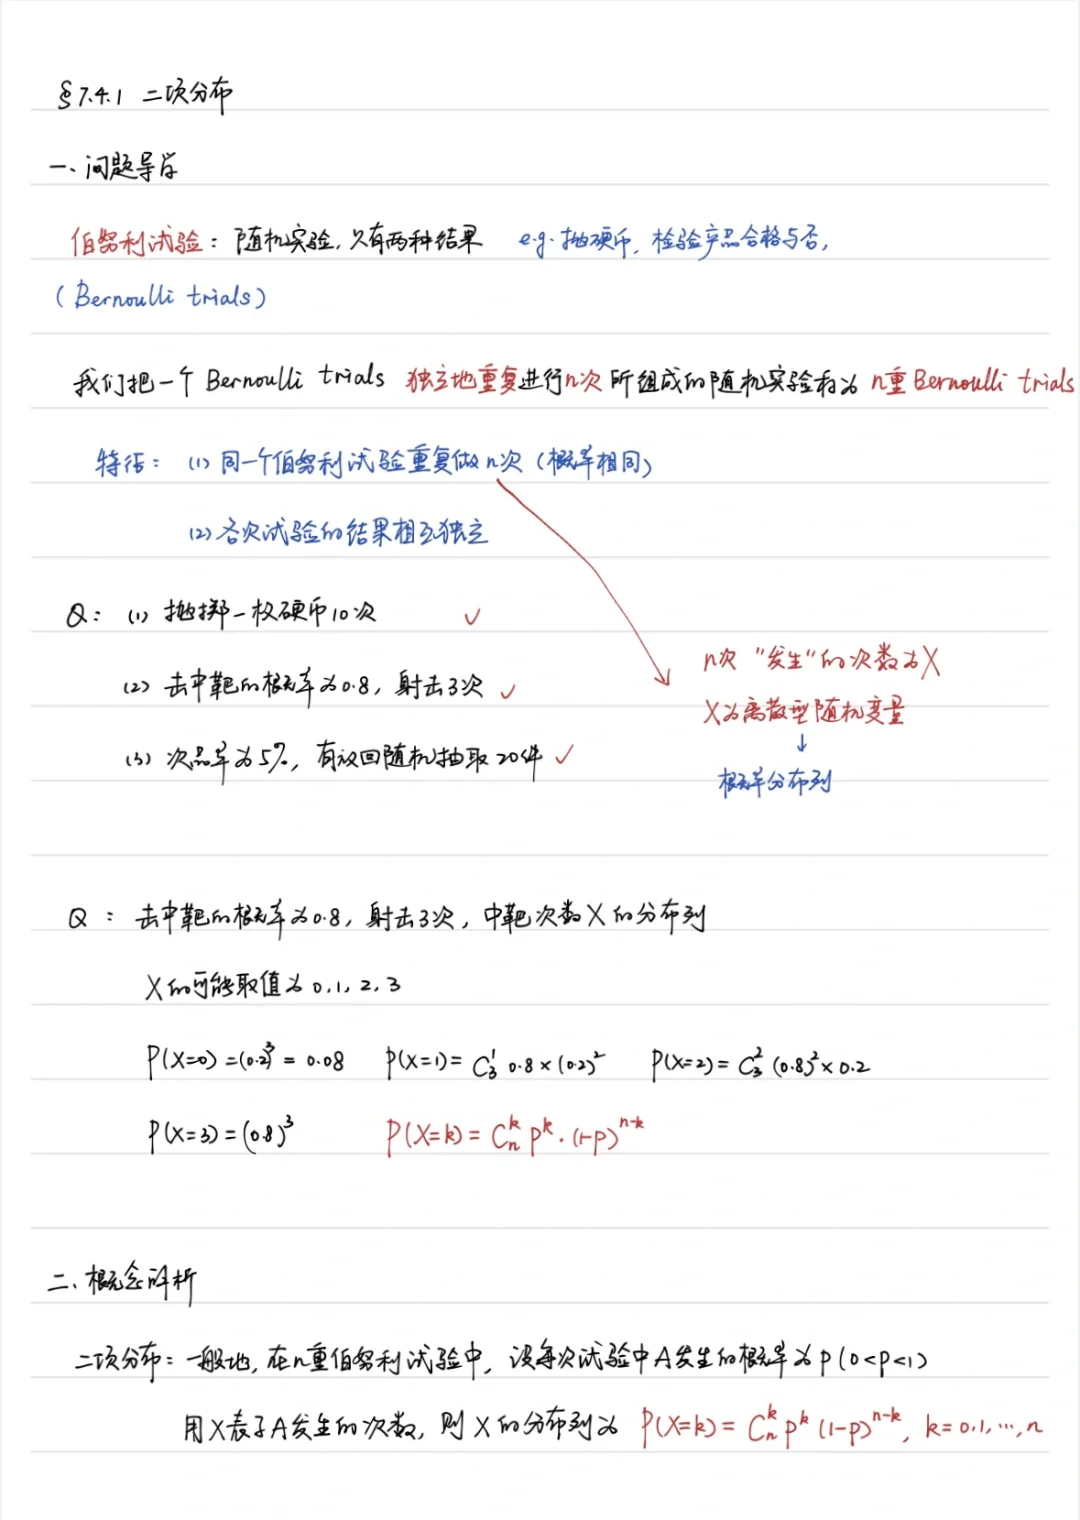 §7.4.1 二项分布
一、问题导学
伯努利试验：随机实验，只有两种结果 e.g. 抛硬币，检验产品合格与否，
(Bernoulli trials)
我们把一个 Bernoulli trials 独立地重复进行n次 所组成的随机实验称为 n重 Bernoulli trials
特征：(1) 同一个伯努利试验重复做n次 (概率相同)
(2) 各次试验的结果相互独立
Q：(1) 抛掷一枚硬币10次 ✓
(2) 击中靶的概率为0.8，射击3次 ✓
(3) 次品率为5%，有放回随机抽取20件 ✓
n次 "发生"的次数为X
X为离散型随机变量
↓
概率分布列
Q：击中靶的概率为0.8，射击3次，中靶次数X的分布列
X的可能取值为 0, 1, 2, 3
P(X=0) = (0.2)³ = 0.08 P(X=1) = C₃¹ 0.8×(0.2)² P(X=2) = C₃² (0.8)²×0.2
P(X=3) = (0.8)³ P(X=k) = Cₙᵏ pᵏ·(1-p)ⁿ⁻ᵏ
二、概念解析
二项分布：一般地，在n重伯努利试验中，设每次试验中A发生的概率为p(0<p<1)
用X表示A发生的次数，则X的分布列为 P(X=k) = Cₙᵏ pᵏ (1-p)ⁿ⁻ᵏ, k=0,1,…,n